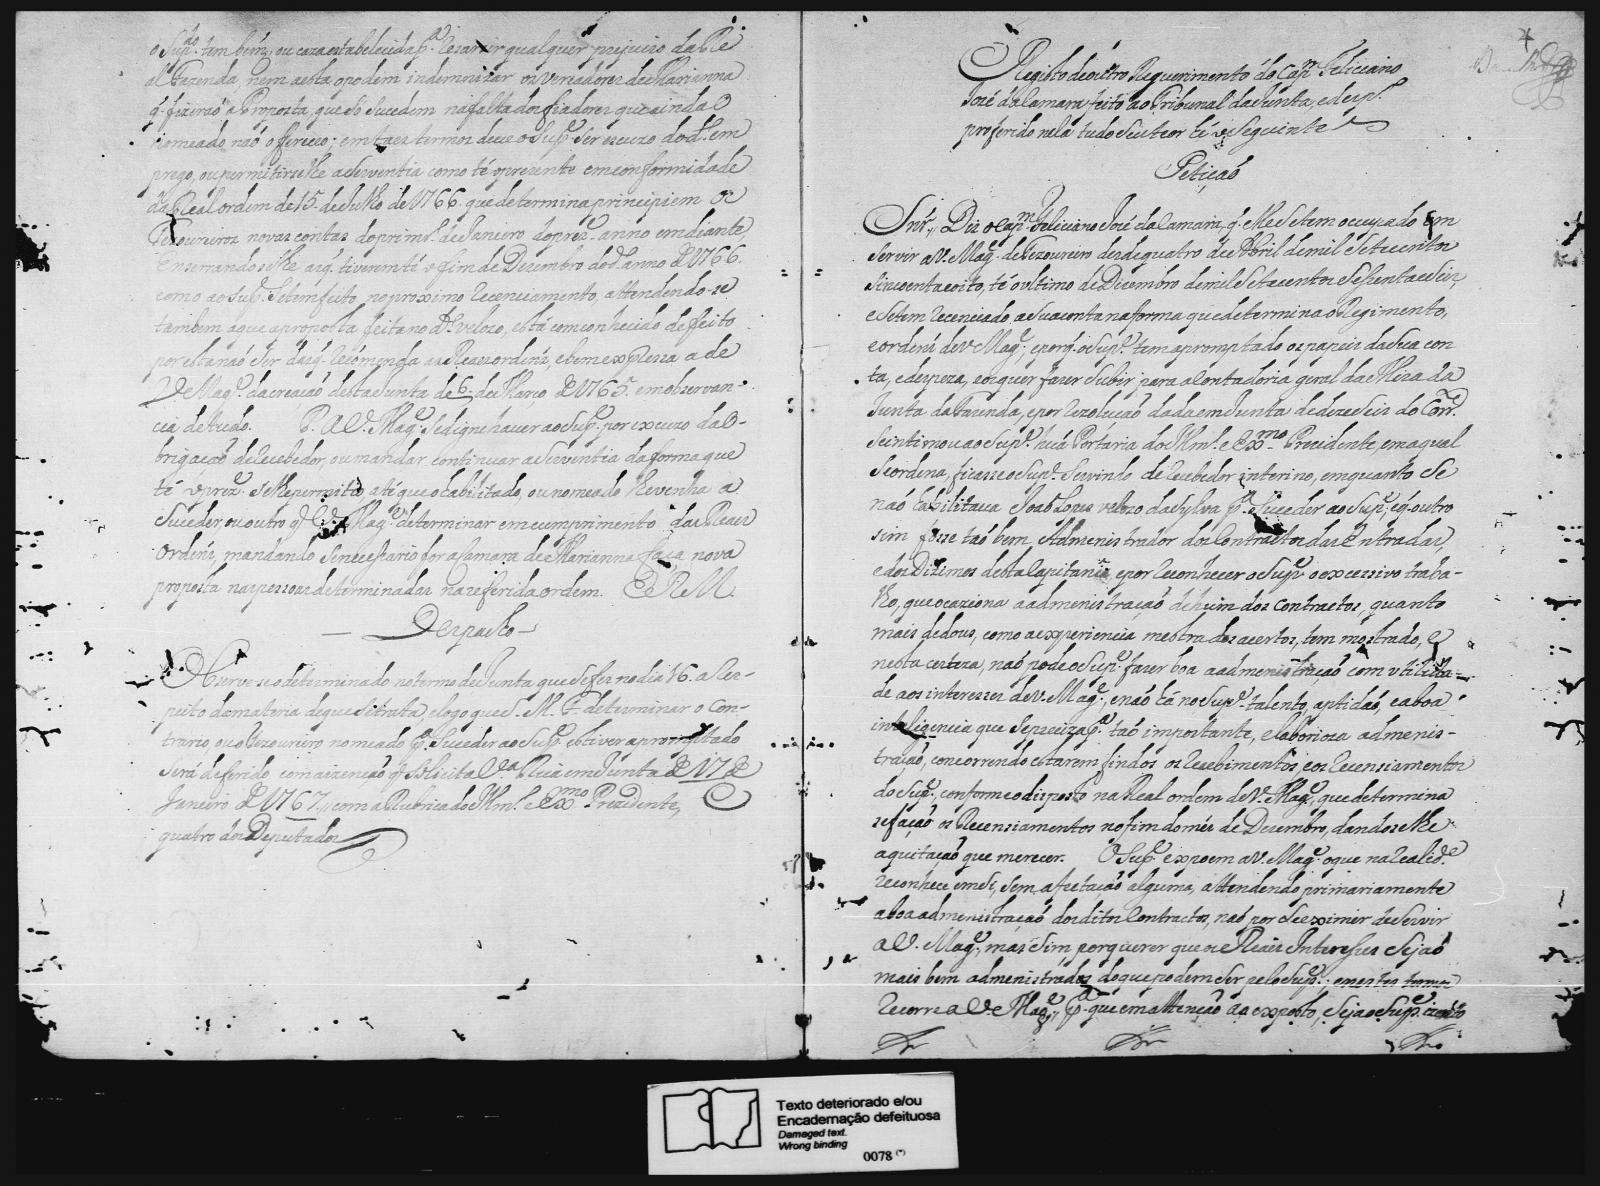 o Sup.e tem bens, ou caza estabelecida p.a resarsir qualquer prejuizo da Re
al Fazenda, nem a esta o podem indemnizar os vereadores de Marianna
q. fizeraõ a Proposta, que só sucedem na falta dos fiadores que ainda o
nomeado naõ offereceo; em taes termos deve o Sup.e ser escuzo do d.o em
prego, ou permitirselhe a serventia como té o prezente em conformidade
da Real ordem de 15 de Julho de 1766 que determina principiem os
Tezoureiros novas contas do prim.ro de Janeiro do prez.e anno em diante,
enserrandoselhe as q. tiverem té o fim de Dezembro do d.o anno de 1766.
como ao Sup.e se tem feito, no proximo recenciamento, attendendo-se
tambem a que a proposta feita no D.o velozo, está com conhecido defeito
por esta naõ ser das q. recomenda as Reaes ordens, e bem expressa a de
V. Mag.e da creaçaõ desta Junta de 6 de Março de 1765. em observan-
cia de tudo. P. A V. Mag.e se digne haver ao Sup.e por excuzo da o-
brigaçaõ de recebedor, ou mandar continuar a serventia da forma que
té o prez.e selhe permitio, até que o habilitado, ou nomeado lhe venha a
suceder, ou outro q. V. Mag.e determinar em cumprimento das Reaes
ordens, mandando se necessario for a Camara de Marianna faça nova
proposta nas pessoas determinadas na referida ordem. E R M.
Despacho
Observese o determinado no termo de Junta que se fes no dia 16. a res-
peito da materia de que se trata, e logo que S. M. F. determinar o con-
trario, ou o Tezoureiro nomeado p.a suceder ao Sup.e estiver apromptado
será deferido com a izençaõ q. solicita V.a Rica em Junta de 17 de
Janeiro de 1767, com a Rubrica do Illm.o e Ex.mo Prezidente, e
quatro dos Deputados
Registo de outro Requerimento do Cap.m Feliciano
José da Camara feito ao Tribunal da Junta, e desp.o
proferido nela tudo seu teor hé o seguinte
Petiçaõ
Snr., Diz o Cap.m Feliciano José da Camara, q. elle se tem ocupado em
servir a V. Mag.e de Tezoureiro desde quatro de Abril de mil setecentos
sincoenta e oito, té o ultimo de Dezembro de mil setecentos sesenta e seis,
e se tem recenciado a sua conta na forma que determina o Regimento,
e ordens de V. Mag.e; e porq. o Sup.e tem apromptado os papeis da sua con
ta, e despeza, e os quer fazer subir para a Contadoria geral da Meza da
Junta da Fazenda, e por rezoluçaõ dada em Junta de dezeseis do Corr.e
se intimou ao Sup.e huã Portaria do Illm.o e Ex.mo Prezidente, em a qual
se ordena, ficasse o Sup.e servindo de recebedor interino, emquanto se
naõ habilitava Joaõ Lopes velozo da Sylva p.a suceder ao Sup.e, e q. outro
sim fosse taõ bem Admenistrador dos Contractos das Entradas,
e dos Dizimos desta Capitania, e por reconhecer o Sup.e o excessivo traba-
lho, que ocaziona a admenistraçaõ de hum dos Contractos, quanto
mais de dous, como a experiencia mestra dos acertos, tem mostrado, e
nesta certeza, naõ pode o Sup.e fazer boa a admenistraçaõ com utilida-
de aos interesses de V. Mag.e; e naõ há no Sup.e talento, aptidaõ, e a boa
inteligencia que se preciza p.a taõ importante, e laborioza admenis-
traçaõ, concorrendo estarem findos os recebimentos, e os recensiamentos
do Sup.e, conforme o disposto na Real ordem de V. Mag.e, que determina
se façaõ os recensiamentos no fim do mes de Dezembro, dandoselhe
a quitaçaõ que merecer. O Sup.e expoem a V. Mag.e o que na realid.e
reconhece em si, sem afectaçaõ alguma, attendendo primariamente
a boa admenistraçaõ dos ditos Contractos, naõ por se eximir de servir
a V. Mag.e, mas sim por querer que os Reais Interesses sejaõ
mais bem admenistrados do que podem ser pelo Sup.e; e nestes termos
recorre a V. Mag.e, p.a que em attençaõ ao exposto, seja o Sup.e izento
Texto deteriorado e/ou
Encadernação defeituosa
Damaged text.
Wrong binding
0078 (*)